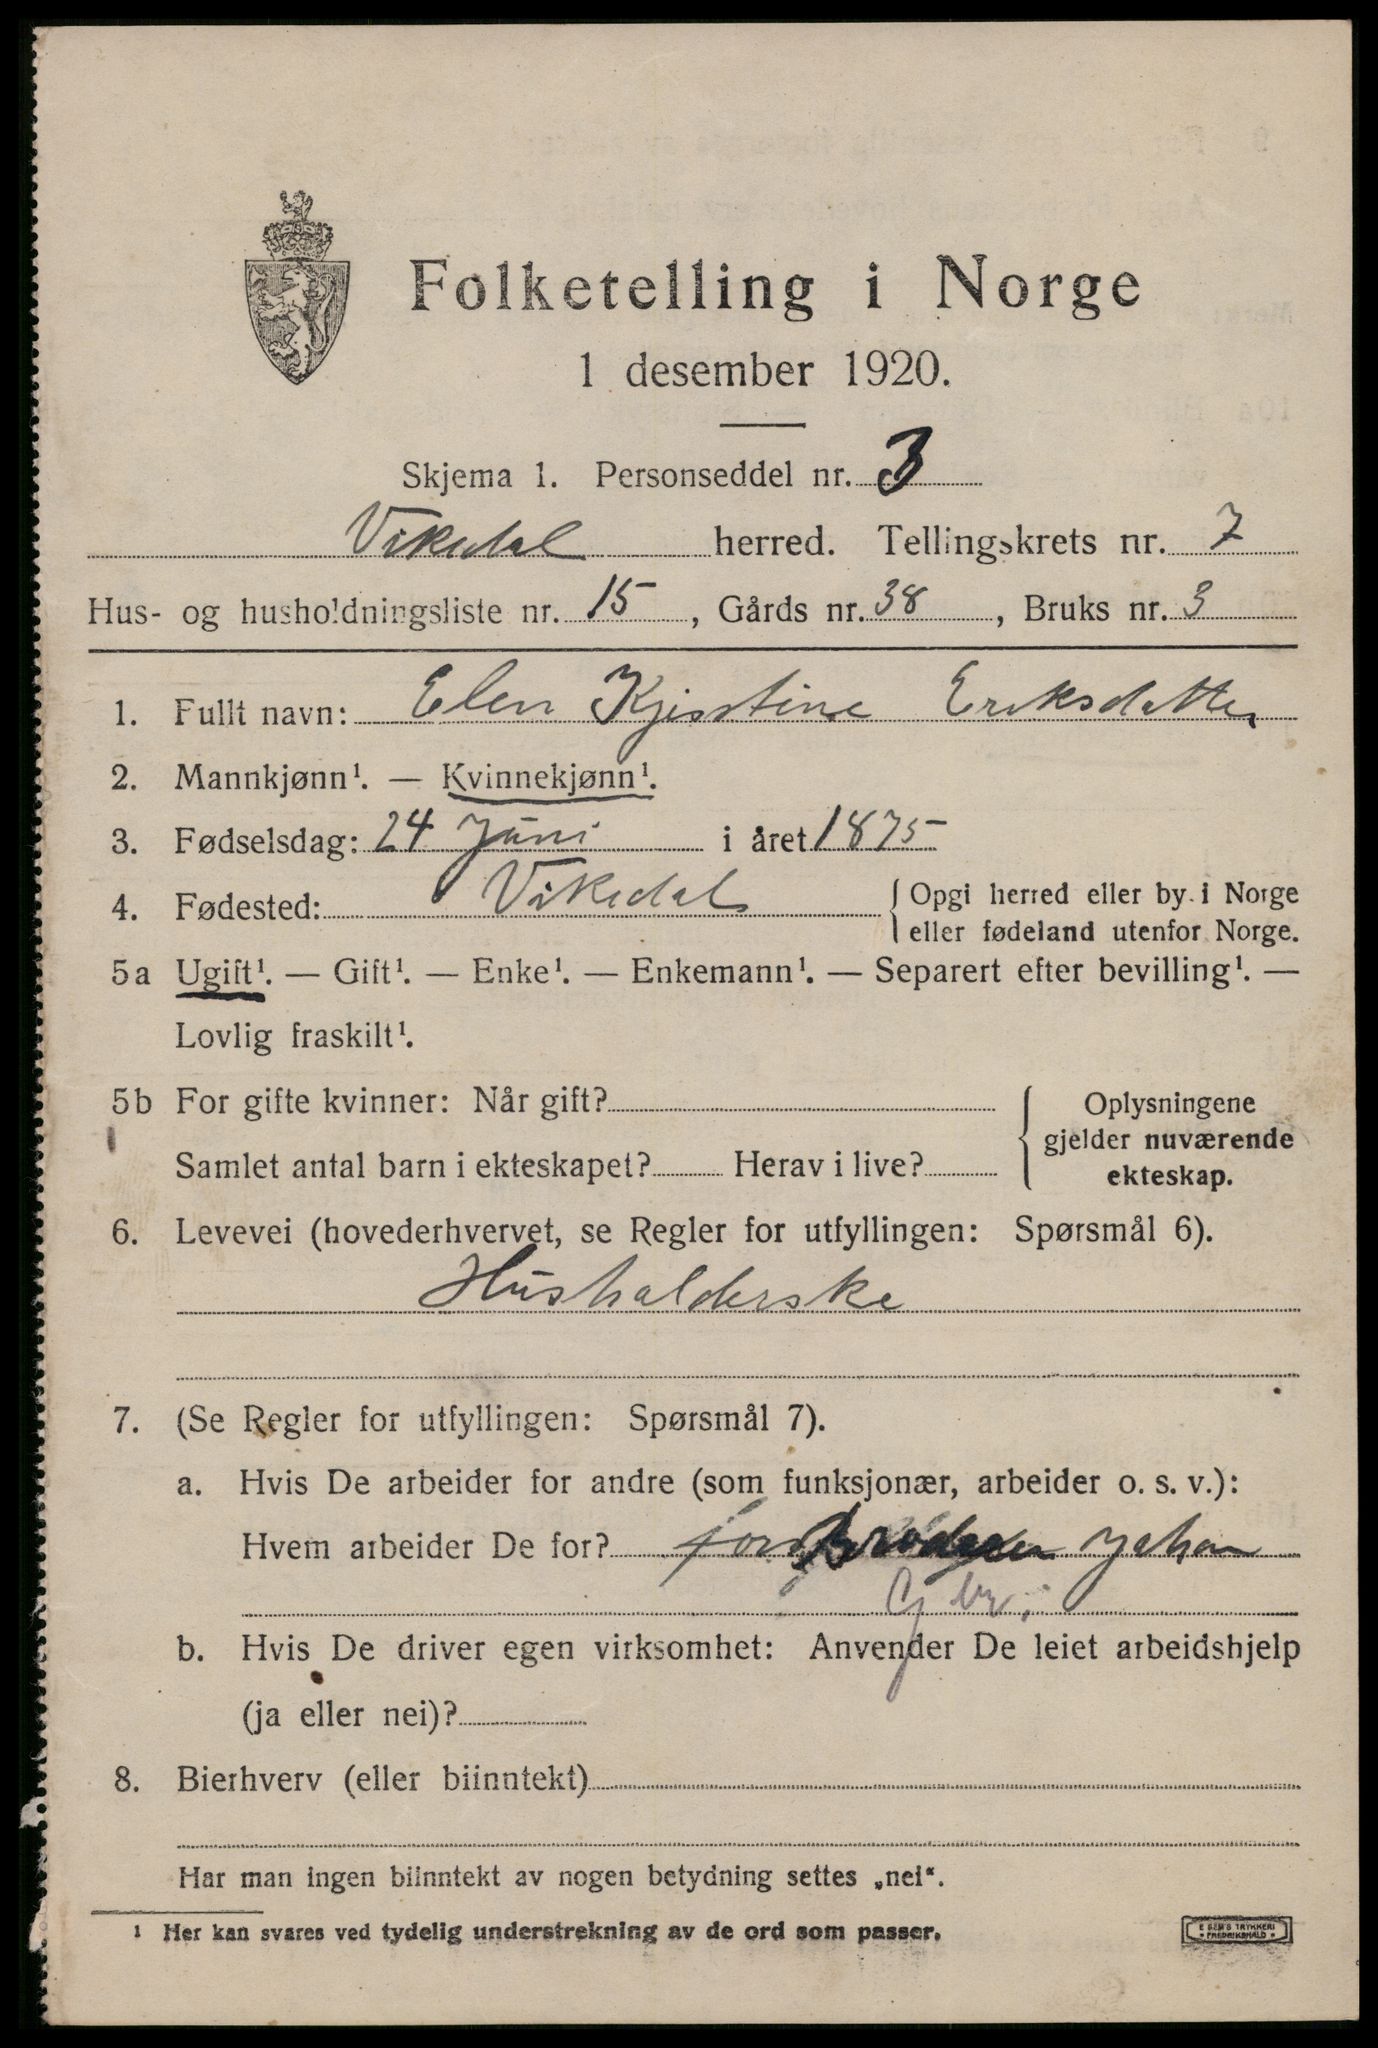 Folketelling i Norge
1 desember 1920.
Skjema 1. Personseddel nr. 3
Vikedal herred. Tellingskrets nr. 7
Hus- og husholdningsliste nr. 15, Gårds nr. 38, Bruks nr. 3
1. Fullt navn: Elen Kjistine Eriksdatter
2. Mannkjønn¹. — Kvinnekjønn¹.
3. Fødselsdag: 24 Juni i året 1875
4. Fødested: Vikedal { Opgi herred eller by i Norge
eller fødeland utenfor Norge.
5a Ugift¹. — Gift¹. — Enke¹. — Enkemann¹. — Separert efter bevilling¹. —
Lovlig fraskilt¹.
5b For gifte kvinner: Når gift?
Samlet antal barn i ekteskapet? Herav i live?
{ Oplysningene
gjelder nuværende
ekteskap.
6. Levevei (hovederhvervet, se Regler for utfyllingen: Spørsmål 6).
Husholderske
7. (Se Regler for utfyllingen: Spørsmål 7).
a. Hvis De arbeider for andre (som funksjonær, arbeider o. s. v.):
Hvem arbeider De for? for Broderen Johan
b. Hvis De driver egen virksomhet: Anvender De leiet arbeidshjelp
(ja eller nei)?
8. Bierhverv (eller biinntekt)
Har man ingen biinntekt av nogen betydning settes „nei“.
¹ Her kan svares ved tydelig understrekning av de ord som passer.
E SEM'S TRYKKERI
FREDRIKSHALD